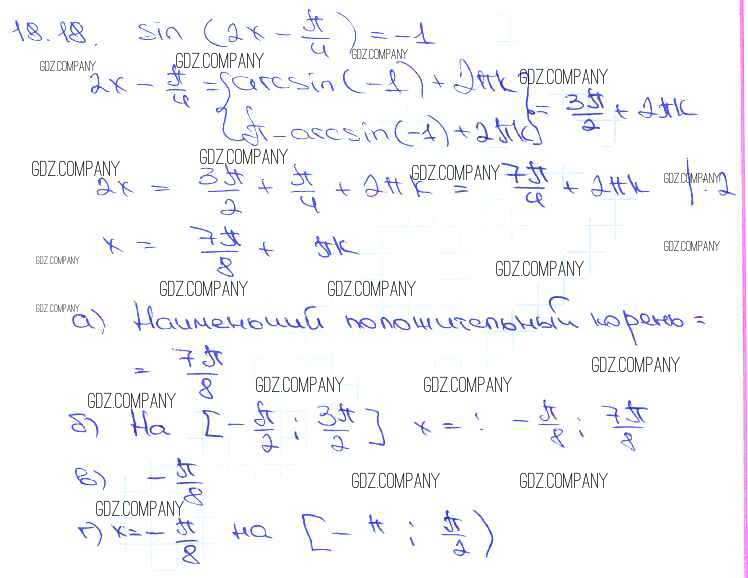 18.18. sin (2x - π/4) = -1
GDZ.COMPANY GDZ.COMPANY GDZ.COMPANY
2x - π/4 = { arcsin(-1) + 2πk } = 3π/2 + 2πk
GDZ.COMPANY
{ π - arcsin(-1) + 2πk }
GDZ.COMPANY GDZ.COMPANY GDZ.COMPANY GDZ.COMPANY
2x = 3π/2 + π/4 + 2πk = 7π/4 + 2πk | : 2
x = 7π/8 + πk
GDZ.COMPANY GDZ.COMPANY GDZ.COMPANY
GDZ.COMPANY GDZ.COMPANY
GDZ.COMPANY
а) Наименьший положительный корень =
= 7π/8
GDZ.COMPANY
GDZ.COMPANY GDZ.COMPANY GDZ.COMPANY
б) На [-π/2 ; 3π/2] x = : -π/8 ; 7π/8
в) -π/8
GDZ.COMPANY GDZ.COMPANY
GDZ.COMPANY
г) x = -π/8 на [-π ; π/2)